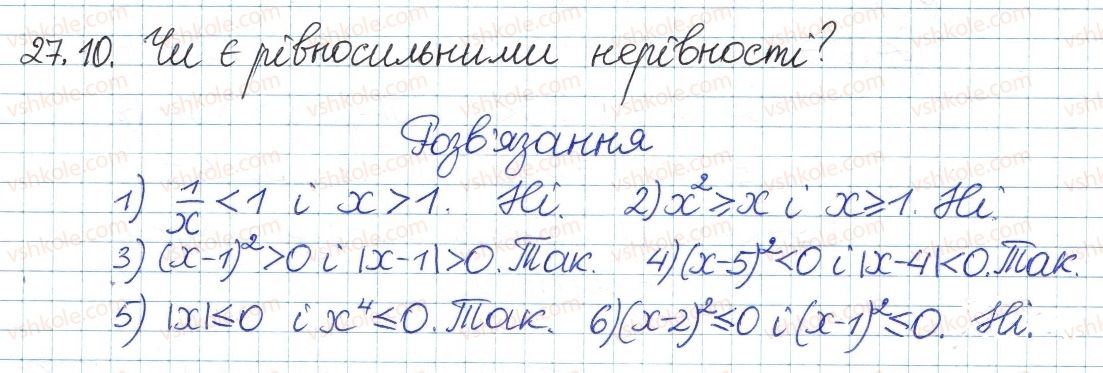 27.10. Чи є рівносильними нерівності?
Розв'язання
1) 1/x < 1 і x > 1. Ні. 2) x² ≥ x і x ≥ 1. Ні.
3) (x-1)² > 0 і |x-1| > 0. Так. 4) (x-5)² < 0 і |x-4| < 0. Так.
5) |x| ≤ 0 і x⁴ ≤ 0. Так. 6) (x-2)² ≤ 0 і (x-1)² ≤ 0. Ні.